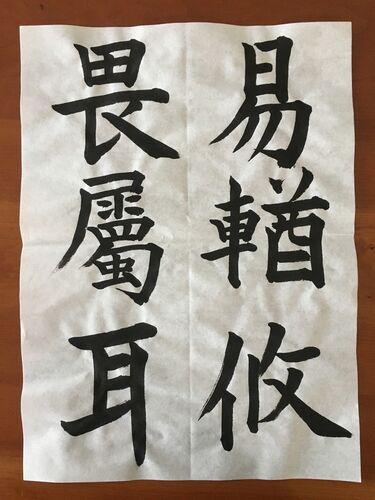 易輶攸
畏屬耳